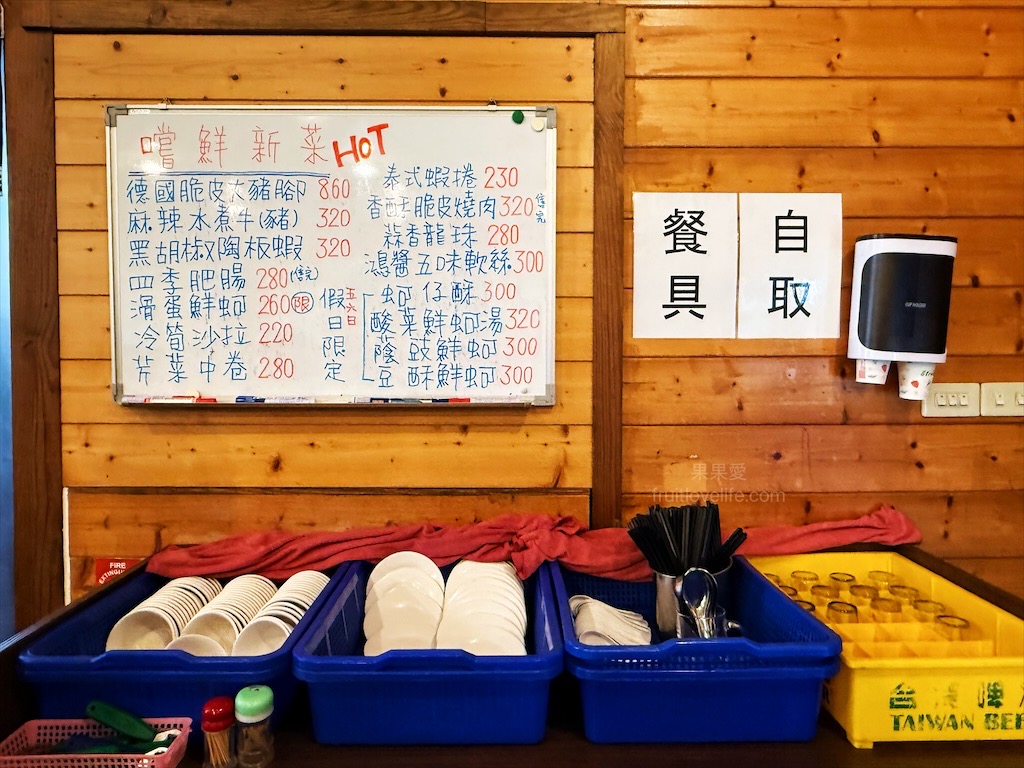 嚐鮮新菜 HOT
德國脆皮大豬腳 860
麻辣水煮牛(豬) 320
黑胡椒陶板蝦 320
四季肥腸 280 (售完)
滑蛋鮮蚵 260 限
冷筍沙拉 220
芹菜中卷 280
泰式蝦捲 230
香酥脆皮燒肉 320 售完
蒜香龍珠 280
鴻醬五味軟絲 300
假日限定
五六日
蚵仔酥 300
酸菜鮮蚵湯 320
蔭豉鮮蚵 300
豆酥鮮蚵 300
餐具
自取
果果愛
fruitlovelife.com
FIRE
台灣啤
TAIWAN BEE